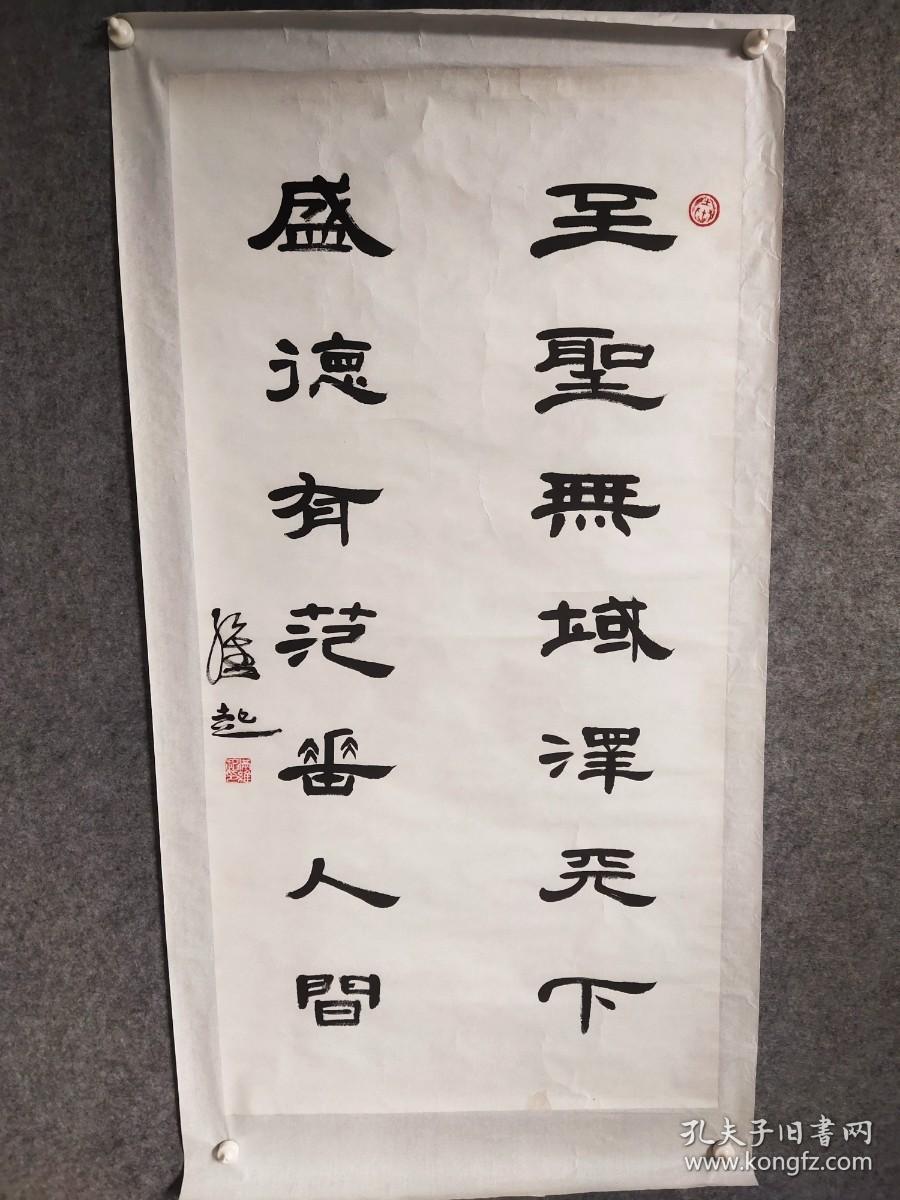 至聖無域澤天下
盛德有范垂人間
孔夫子旧書网
www.kongfz.com